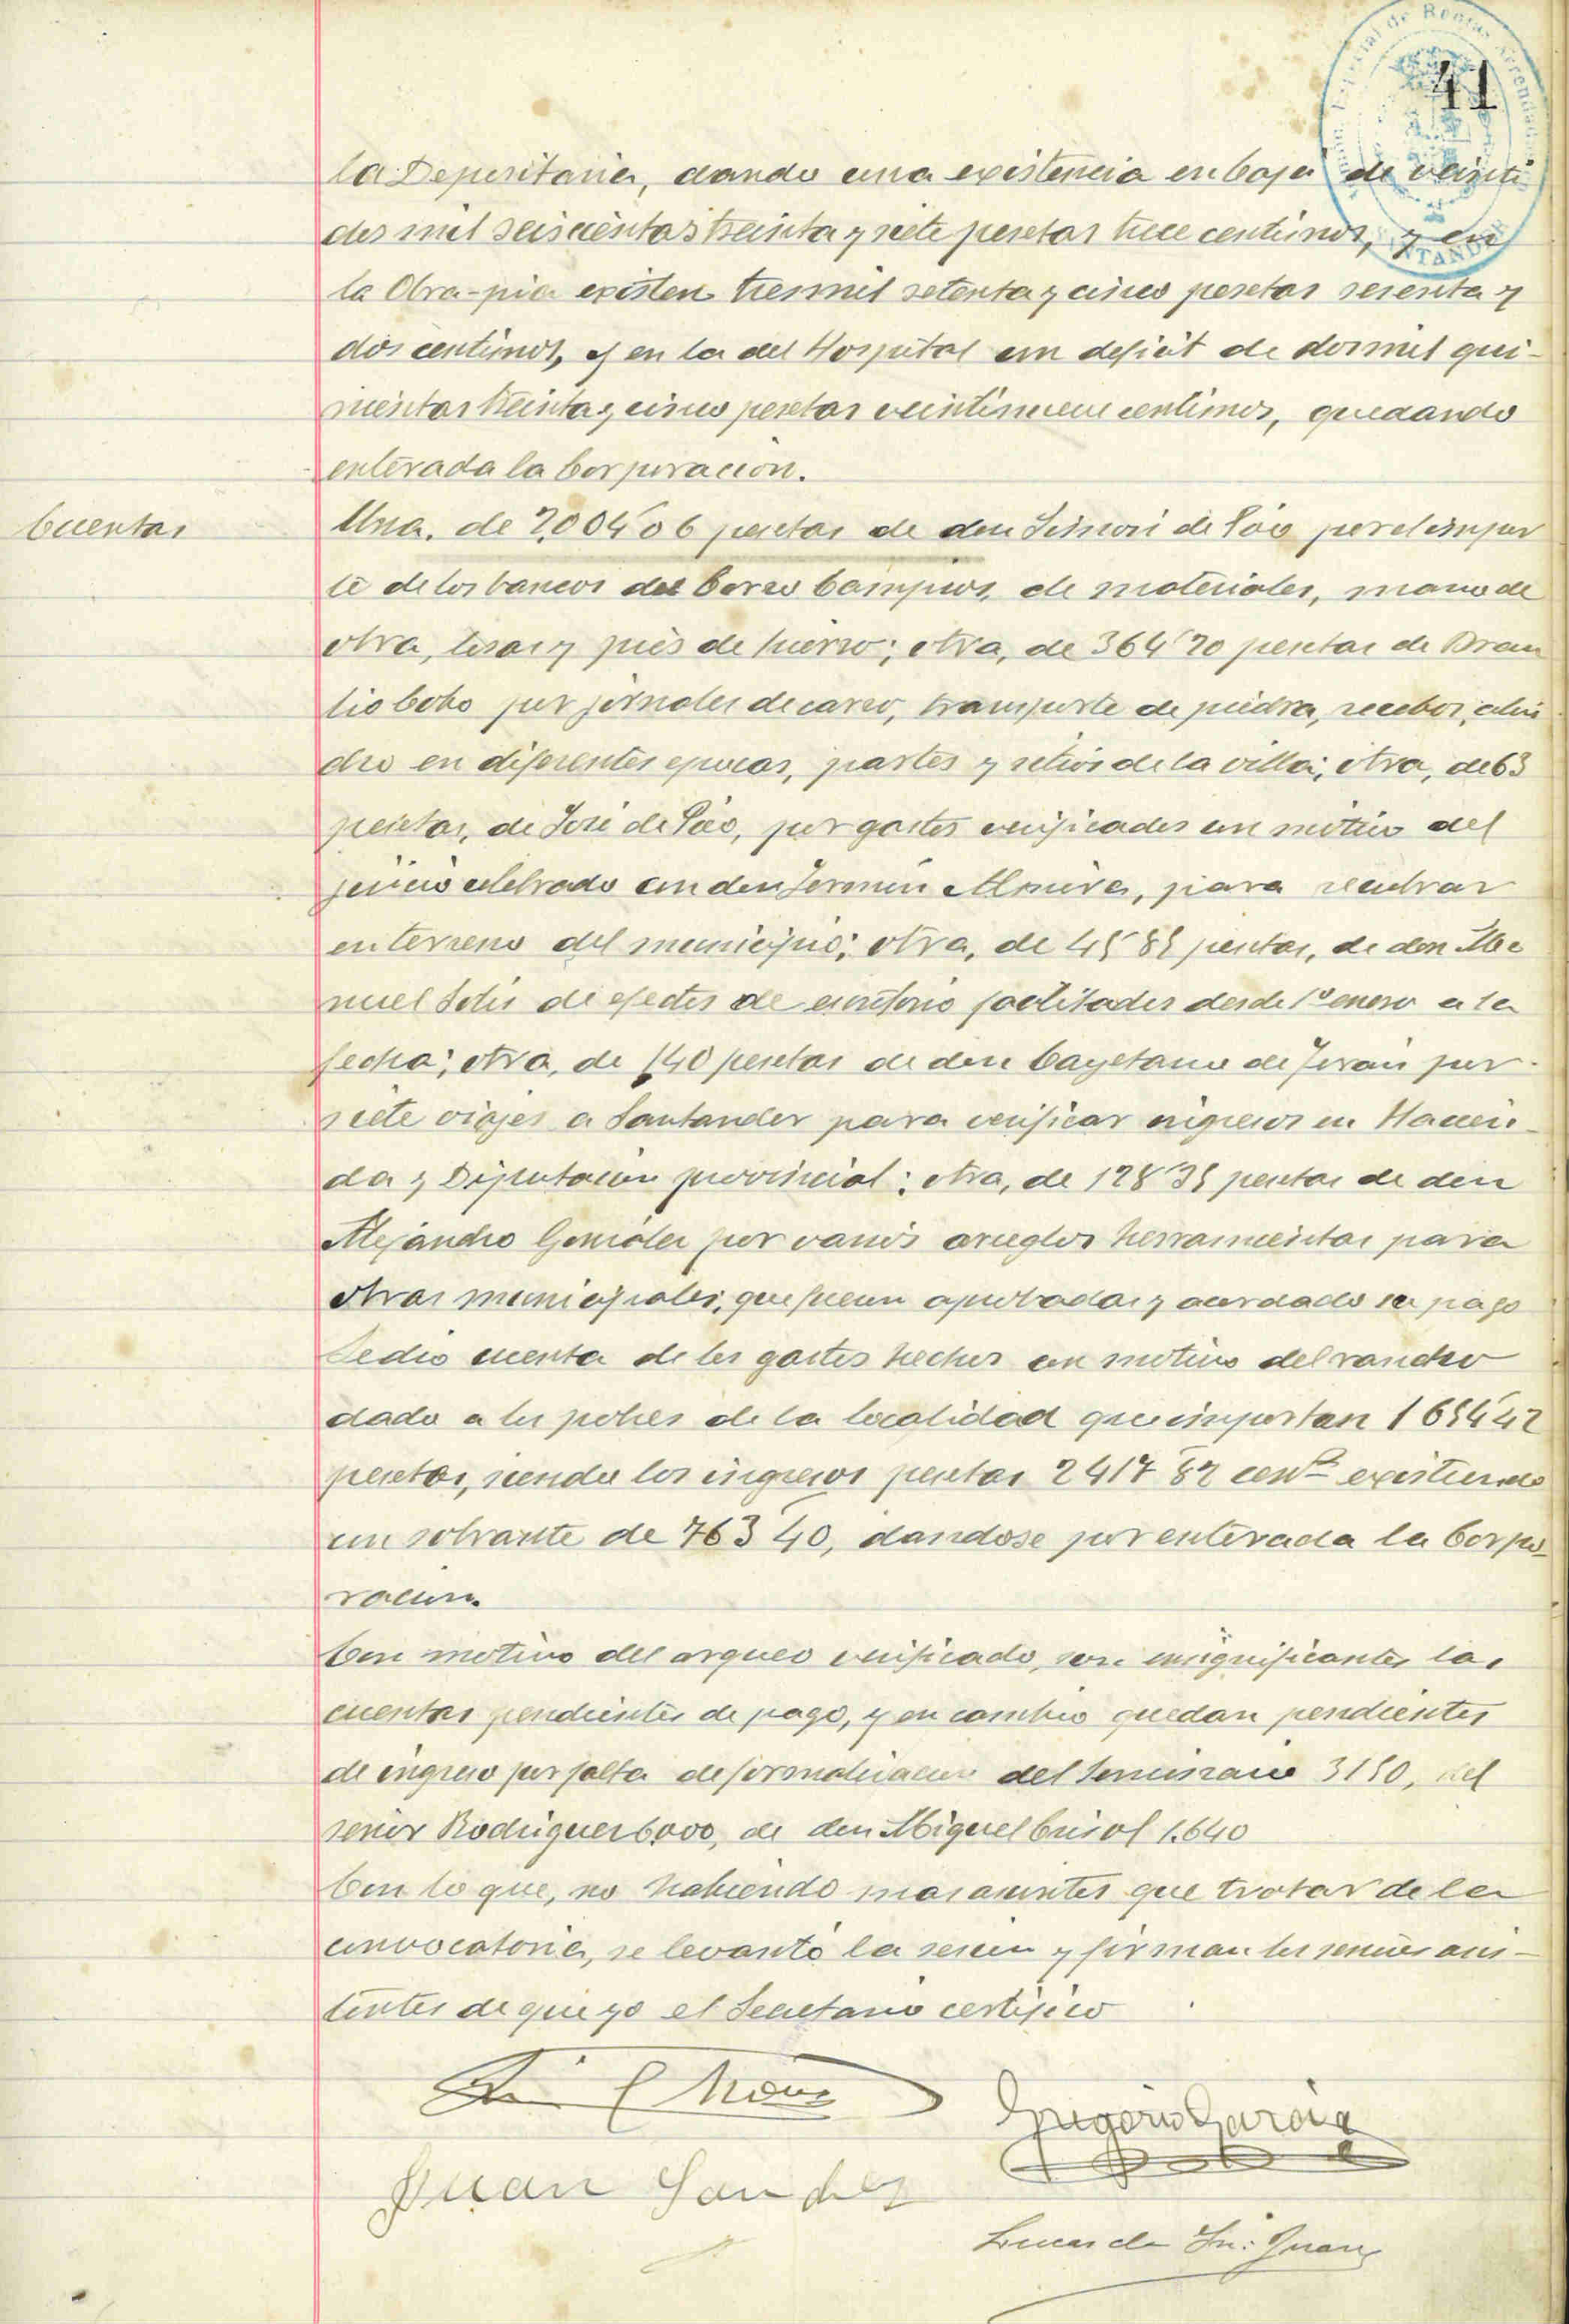 41
la Depositaria, dando una existencia en caja de veinti
dos mil seiscientas treinta y siete pesetas trece centimos, y en
la Obra-pia existen tresmil setenta y cinco pesetas sesenta y
dos centimos, y en la del Hospital un deficit de dosmil qui-
nientas treinta y cinco pesetas veintinueve centimos, quedando
enterada la Corporacion.
Cuentas
Una, de 2,004'06 pesetas de don Simon de Póo por el impor
te de los bancos del Corro Campios, de materiales, mano de
obra, losas y piés de hierro; otra, de 364'20 pesetas de Brau
lio Cobo por jornales de carro, transporte de piedra, recebos,
en diferentes epocas, partes y sitios de la villa; otra, de 63
pesetas, de José de Póo, por gastos verificados con motivo del
juicio celebrado con don Fermin, para recobrar
en terreno del municipio; otra, de 45'85 pesetas, de don Ma
nuel Solis de efectos de escritorio facilitados desde 1º enero a la
fecha; otra, de 140 pesetas de don Cayetano de Terán por
siete viajes a Santander para verificar ingresos en Hacien-
da y Diputacion provincial; otra, de 128'35 pesetas de don
Alejandro González por varios arreglos herramientas para
obras municipales, que fueron aprobadas y acordado su pago
Se dio cuenta de los gastos hechos con motivo del rancho
dado a los pobres de la localidad que importan 1654'42
pesetas, siendo los ingresos pesetas 2417'82 cents existiendo
un sobrante de 763'40, dandose por enterada la Corpo-
racion.
Con motivo del arqueo verificado, son insignificantes las
cuentas pendientes de pago, y en cambio quedan pendientes
de ingreso por falta de formalizacion del Seminario 3150, del
señor Rodriguez 6.000, de don Miguel 1.640
Con lo que, no habiendo mas asuntos que tratar de la
convocatoria, se levantó la sesion y firman los señores asis-
tentes de que yo el Secretario certifico
Gregorio Garcia
Juan Sanchez
Lucas de Sn. Juan